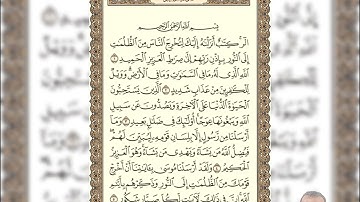 بِسْمِ اللَّهِ الرَّحْمَٰنِ الرَّحِيمِ
الٓر كِتَٰبٌ أَنزَلْنَٰهُ إِلَيْكَ لِتُخْرِجَ النَّاسَ مِنَ الظُّلُمَٰتِ
إِلَى النُّورِ بِإِذْنِ رَبِّهِمْ إِلَىٰ صِرَٰطِ الْعَزِيزِ الْحَمِيدِ ١
اللَّهِ الَّذِى لَهُۥ مَا فِى السَّمَٰوَٰتِ وَمَا فِى الْأَرْضِ وَوَيْلٌ
لِّلْكَٰفِرِينَ مِنْ عَذَابٍ شَدِيدٍ ٢ الَّذِينَ يَسْتَحِبُّونَ
الْحَيَوٰةَ الدُّنْيَا عَلَى الْءَاخِرَةِ وَيَصُدُّونَ عَن سَبِيلِ
اللَّهِ وَيَبْغُونَهَا عِوَجًا أُو۟لَٰٓئِكَ فِى ضَلَٰلٍۭ بَعِيدٍ ٣ وَمَآ
أَرْسَلْنَا مِن رَّسُولٍ إِلَّا بِلِسَانِ قَوْمِهِۦ لِيُبَيِّنَ لَهُمْ
فَيُضِلُّ اللَّهُ مَن يَشَآءُ وَيَهْدِى مَن يَشَآءُ وَهُوَ الْعَزِيزُ
الْحَكِيمُ ٤ وَلَقَدْ أَرْسَلْنَا مُوسَىٰ بِـَٔايَٰتِنَآ أَنْ أَخْرِجْ
قَوْمَكَ مِنَ الظُّلُمَٰتِ إِلَى النُّورِ وَذَكِّرْهُم بِأَيَّىٰمِ
اللَّهِ إِنَّ فِى ذَٰلِكَ لَءَايَٰتٍ لِّكُلِّ صَبَّارٍ شَكُورٍ ٥